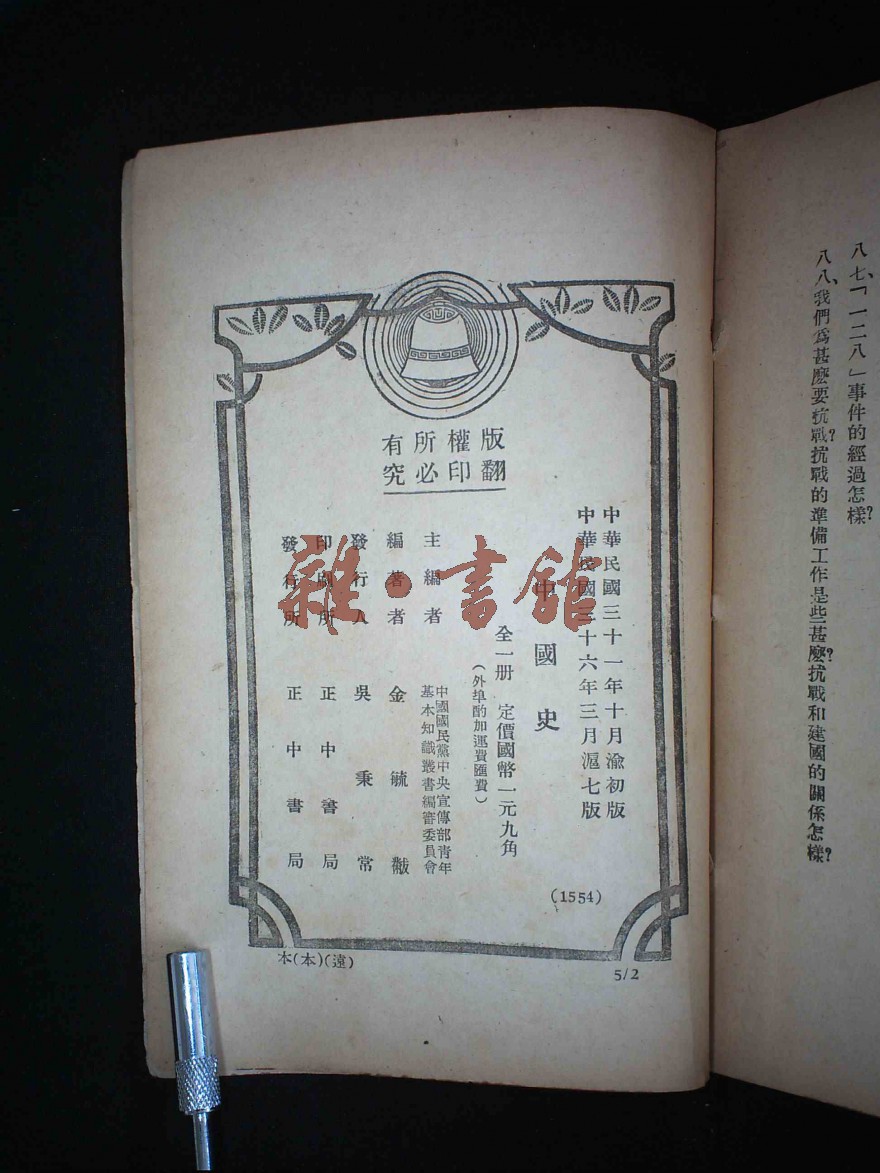 八七、「一二八」事件的經過怎樣？
八八、我們爲甚麼要抗戰？抗戰的準備工作是些甚麼？抗戰和建國的關係怎樣？
版權所有
翻印必究
中華民國三十一年十月渝初版
中華民國三十六年三月滬七版
中國史
全一册 定價國幣一元九角
（外埠酌加運費匯費）
主編者 中國國民黨中央宣傳部青年
基本知識叢書編審委員會
編著者 金毓黻
發行人 吳秉常
印刷所 正中書局
發行所 正中書局
(1554)
本(本)(遠)
5/2
雜·書館